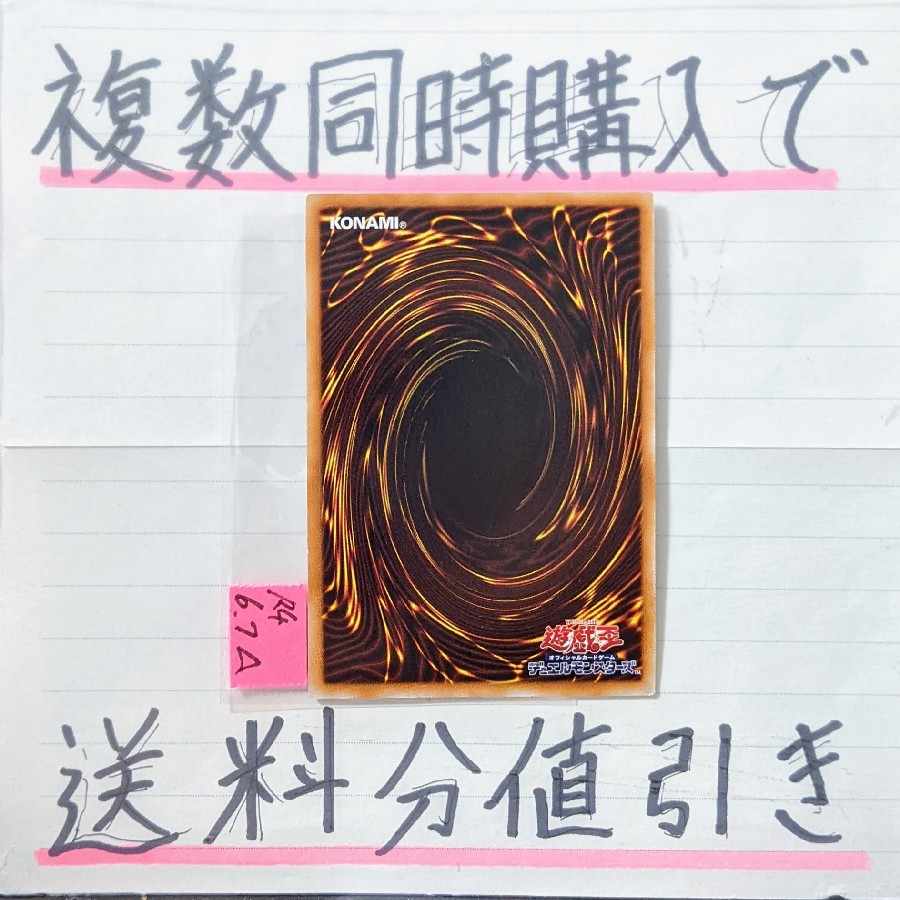 複数同時購入で
KONAMI®
R4
6.7A
遊戯王
オフィシャルカードゲーム
デュエルモンスターズ™
送料分値引き